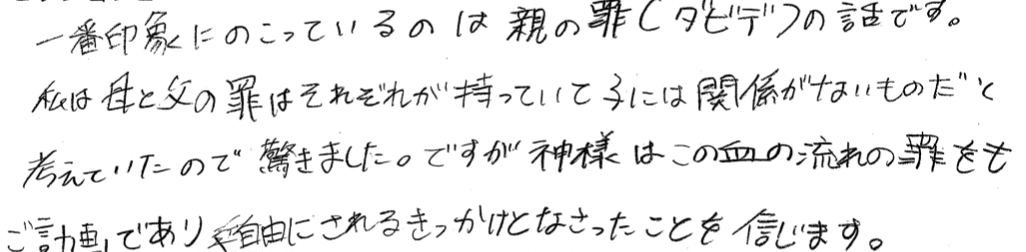 一番印象にのこっているのは親の罪(ダビデ)の話です。
私は母と父の罪はそれぞれが持っていて子には関係がないものだと
考えていたので驚きました。ですが神様はこの血の流れの罪をも
ご計画であり自由にされるきっかけとなさったことを信じます。